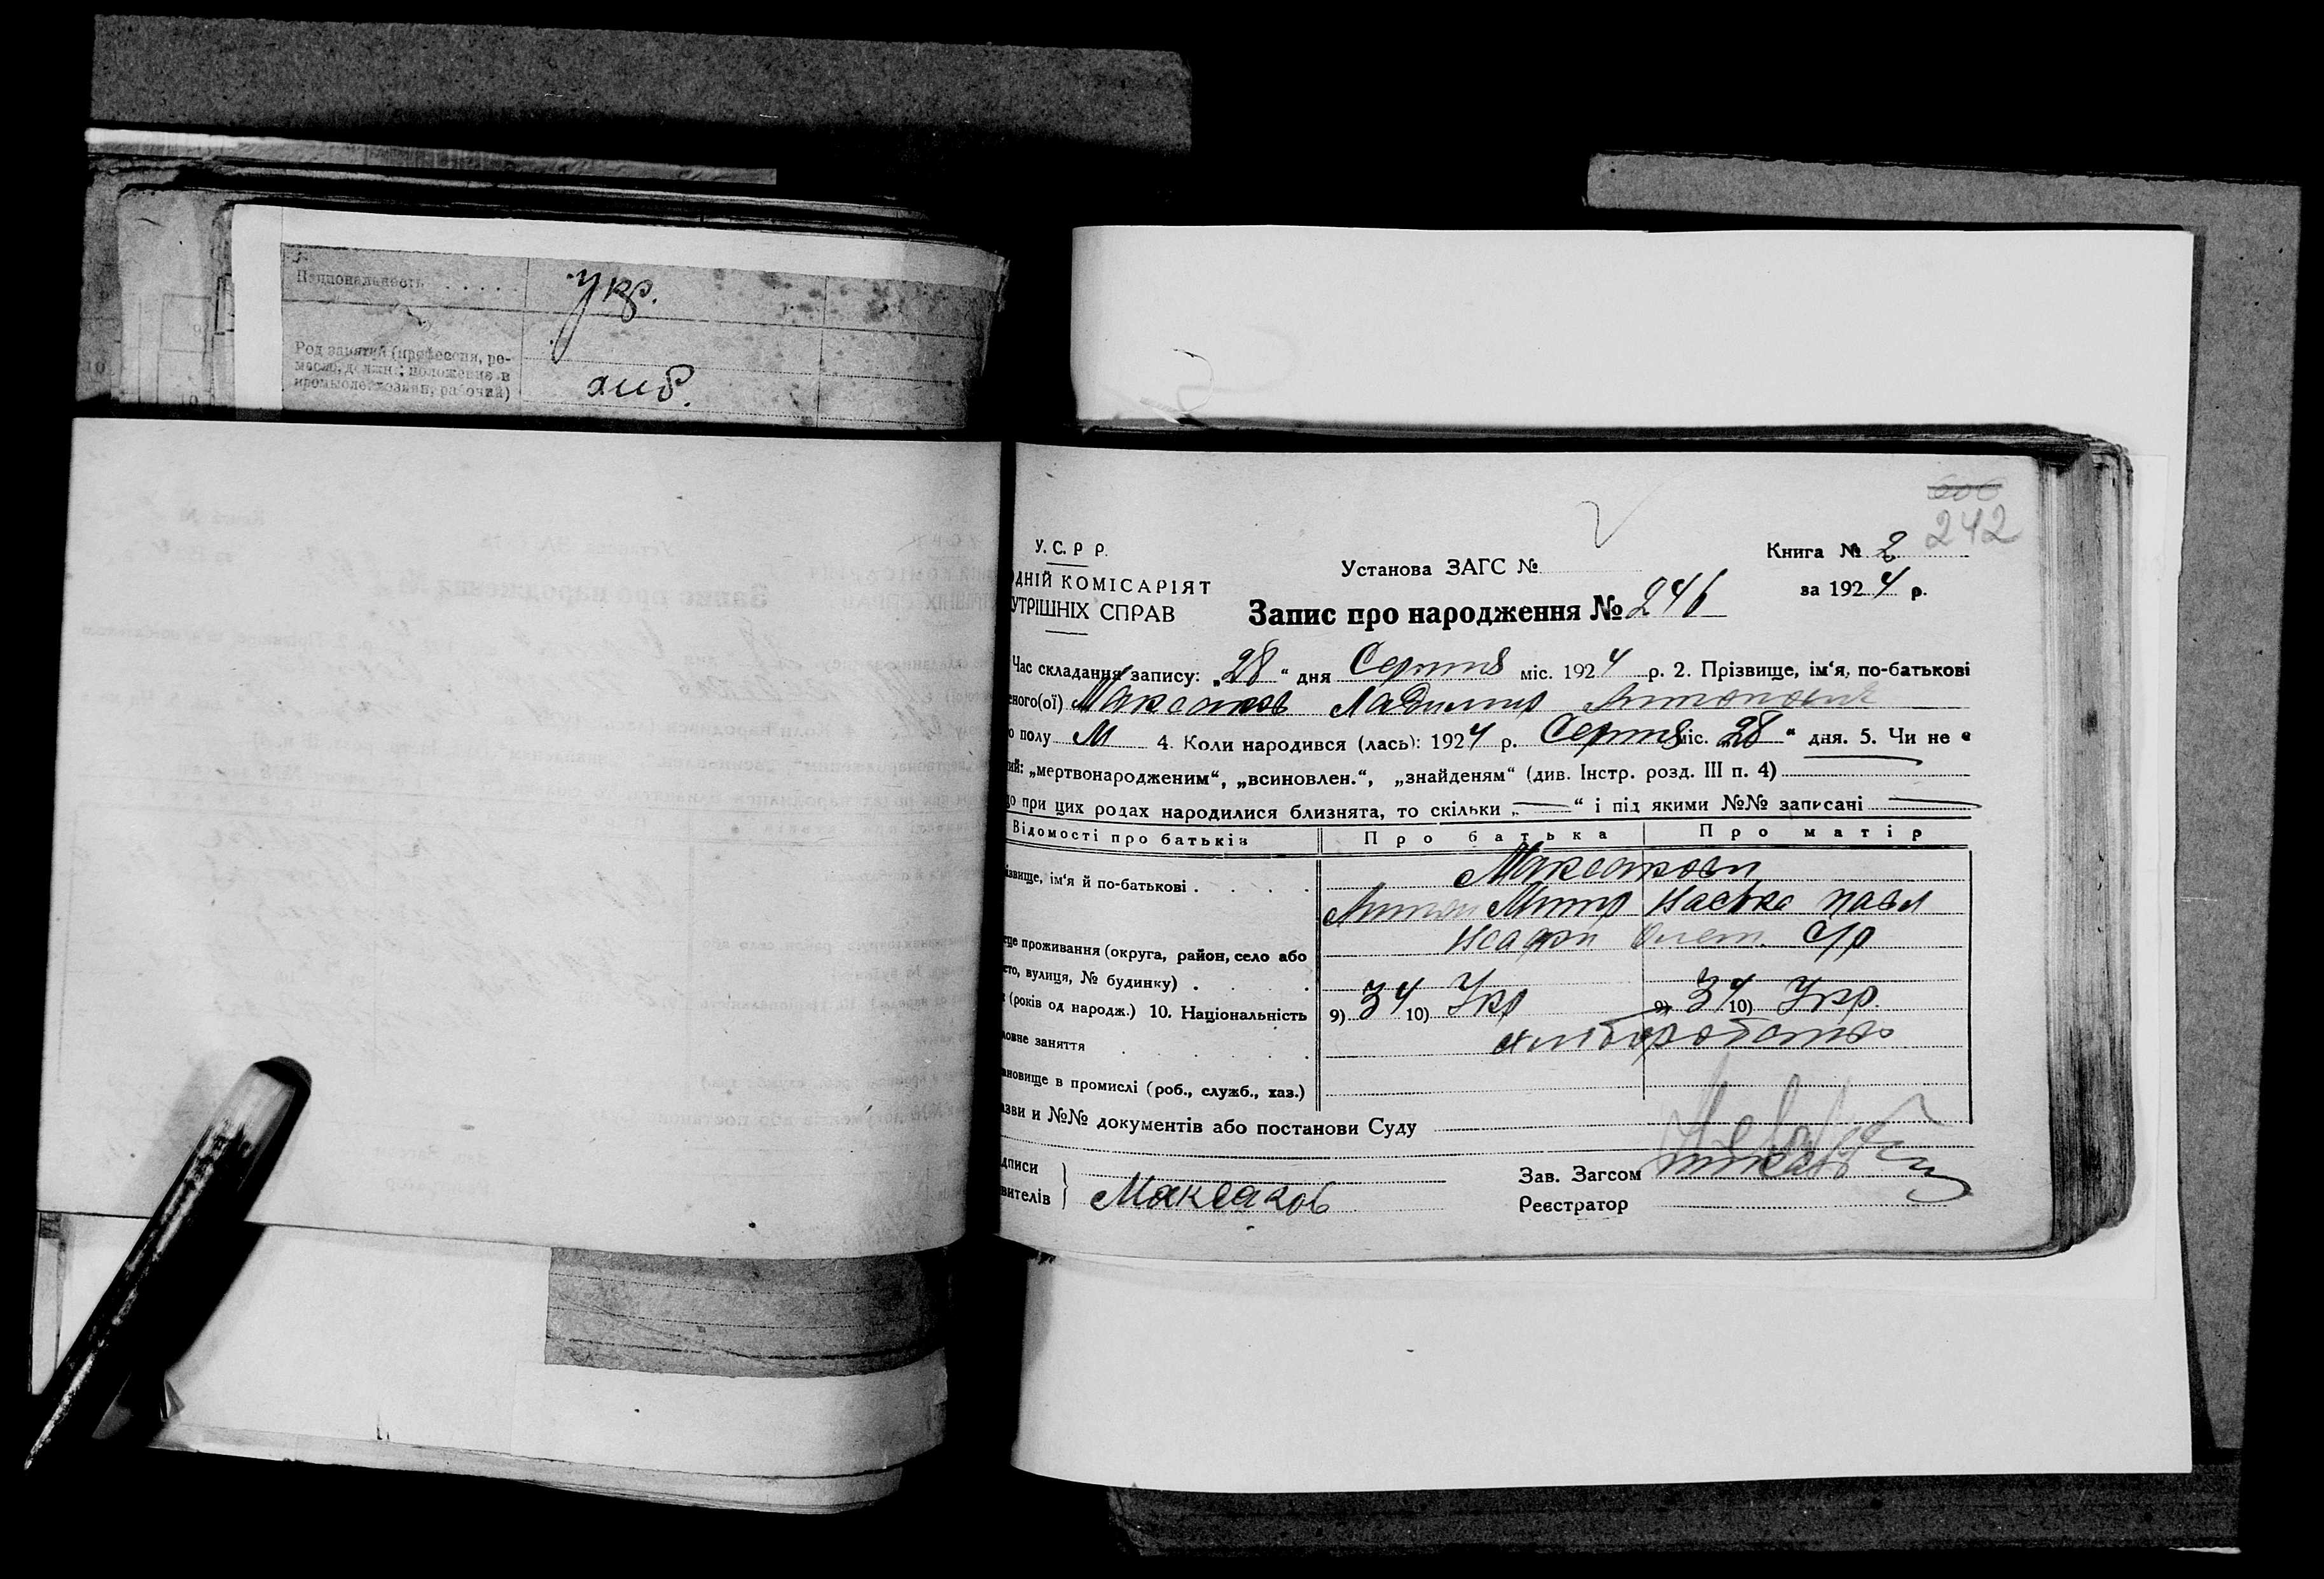 Национальность . . . . . укр.
Род занятий (профессия, ре-
месло, должн., положение в
промысле: хозяин, рабочий)
хліб.
600
242
У. С. Р Р.
ДНІЙ КОМІСАРІЯТ
УТРІШНІХ СПРАВ
Установа ЗАГС №
Книга № 2
за 1924 р.
Запис про народження № 246
Час складання запису: „28“ дня Серпня міс. 1924 р. 2. Прізвище, ім‘я, по-батькові
еного(ої) Максаков Ладимир Антонович
о полу М 4. Коли народився (лась): 1924 р. Серпня міс. 28 “ дня. 5. Чи не є
ий: „мертвонародженим“, „всиновлен.“, „знайденям“ (див. Інстр. розд. III п. 4)
що при цих родах народилися близнята, то скільки „ — “ і під якими №№ записані —
Відомості про батьків Про батька Про матір
ізвище, ім‘я й по-батькові . . . . Максакови
Антон Митр Настка Павл
сце проживання (округа, район, село або
сто, вулиця, № будинку) . . .
к (років од народж.) 10. Національність 9) 34 10) Укр 9) 34 10) Укр.
ловне заняття . . . . хліборобство
ановище в промислі (роб., служб., хаз.)
азви и №№ документів або постанови Суду
дписи
вителів } Максаков
Зав. Загсом
Реєстратор